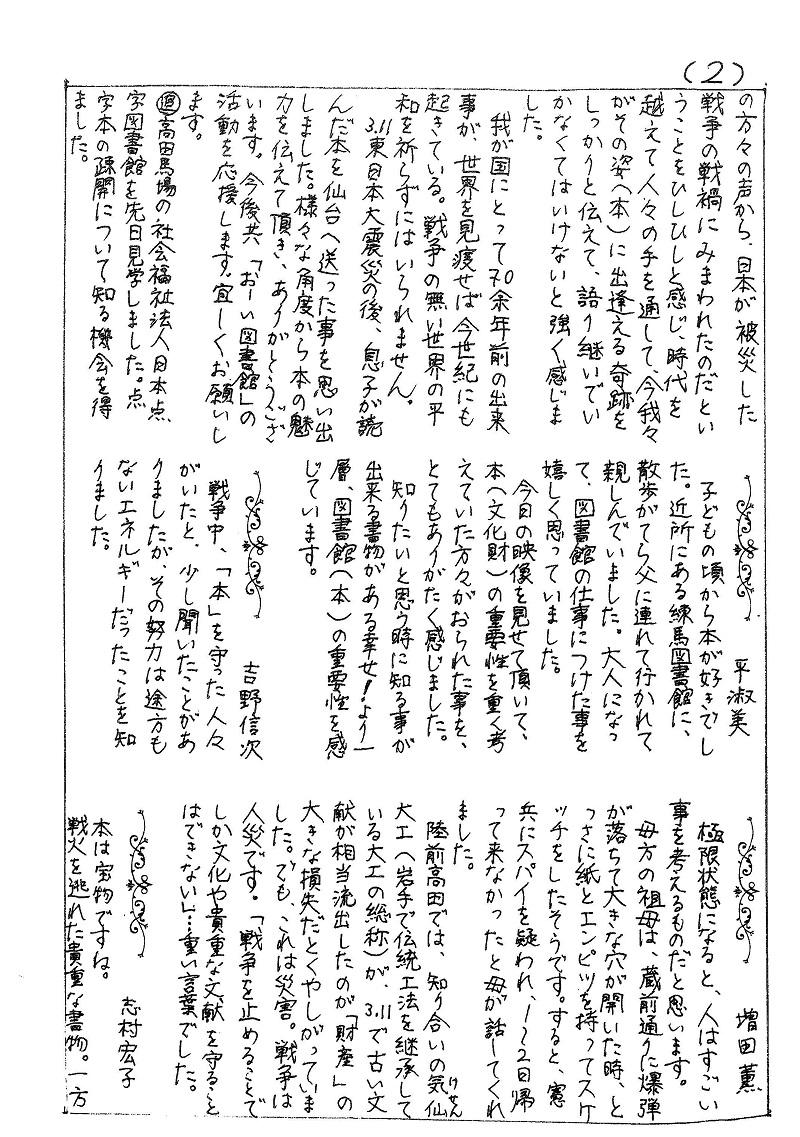 (2)
の方々の声から、日本が被災した
戦争の戦禍にみまわれたのだとい
うことをひしひしと感じ、時代を
越えて人々の手を通して、今我々
がその姿(本)に出逢える奇跡を
しっかりと伝えて、語り継いでい
かなくてはいけないと強く感じま
した。
我が国にとって70余年前の出来
事が、世界を見渡せば今世紀にも
起きている。戦争の無い世界の平
和を祈らずにはいられません。
3.11東日本大震災の後、息子が読
んだ本を仙台へ送った事を思い出
しました。様々な角度から本の魅
力を伝えて頂き、ありがとうござ
います。今後共「おーい図書館」の
活動を応援します。宜しくお願いし
ます。
追高田馬場の社会福祉法人日本点
字図書館を先日見学しました。点
字本の疎開について知る機会を得
ました。
平淑美
子どもの頃から本が好きでし
た。近所にある練馬図書館に、
散歩がてら父に連れて行かれて
親しんでいました。大人になっ
て、図書館の仕事につけた事を
嬉しく思っていました。
今日の映像を見せて頂いて、
本(文化財)の重要性を重く考
えていた方々がおられた事を、
とてもありがたく感じました。
知りたいと思う時に知る事が
出来る書物がある幸せ!より一
層、図書館(本)の重要性を感
じています。
吉野信次
戦争中、「本」を守った人々
がいたと、少し聞いたことがあ
りましたが、その努力は途方も
ないエネルギーだったことを知
りました。
増田薫
極限状態になると、人はすごい
事を考えるものだと思います。
母方の祖母は、蔵前通りに爆弾
が落ちて大きな穴が開いた時、と
っさに紙とエンピツを持ってスケ
ッチをしたそうです。すると、憲
兵にスパイを疑われ、1〜2日帰
って来なかったと母が話してくれ
ました。
陸前高田では、知り合いの気仙
けせん
大工(岩手で伝統工法を継承して
いる大工の総称)が、3.11で古い文
献が相当流出したのが「財産」の
大きな損失だとくやしがっていま
した。でも、これは災害。戦争は
人災です。「戦争を止めることで
しか文化や貴重な文献を守ること
はできない」…重い言葉でした。
志村宏子
本は宝物ですね。
戦火を逃れた貴重な書物。一方